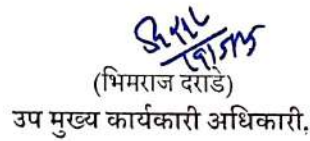 (भिमराज दराडे)
उप मुख्य कार्यकारी अधिकारी.